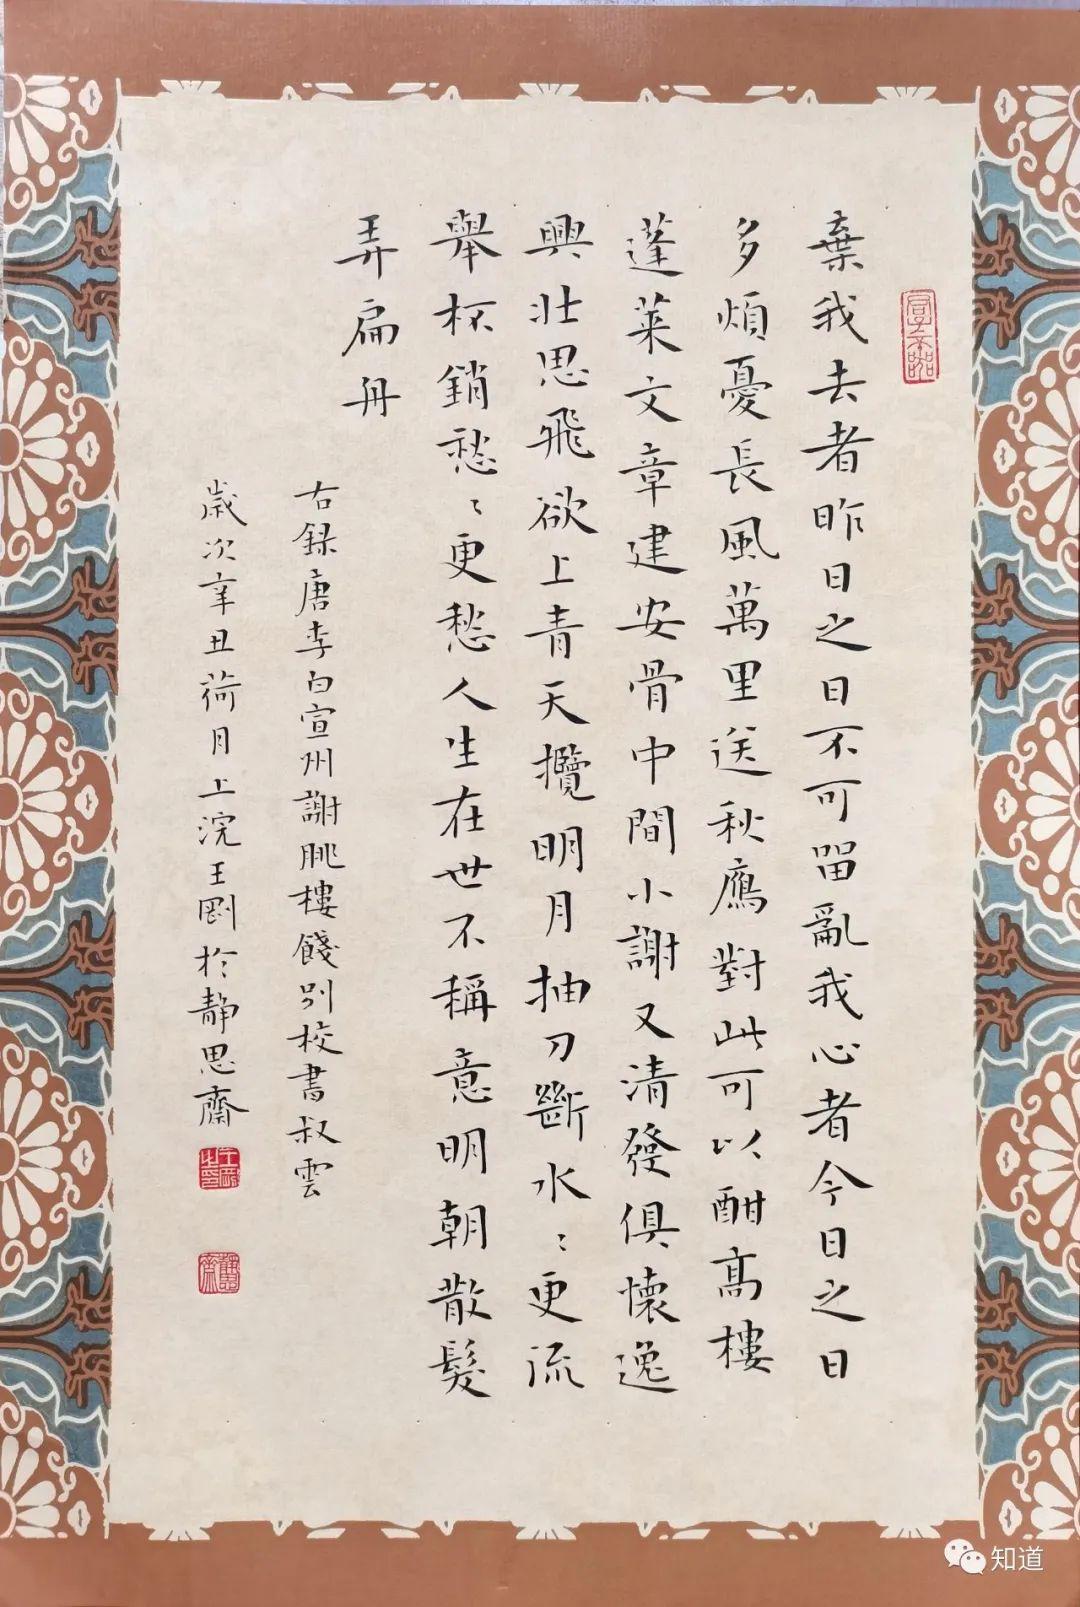 棄我去者昨日之日不可畱亂我心者今日之日
多煩憂長風萬里送秋鴈對此可以酣髙樓
蓬萊文章建安骨中間小謝又清發俱懷逸
興壯思飛欲上青天攬明月抽刀斷水〻更流
舉杯銷愁〻更愁人生在世不稱意明朝散髮
弄扁舟
右録唐李白宣州謝朓樓餞别校書叔雲
歲次辛丑荷月上浣王剛於靜思齋
知道